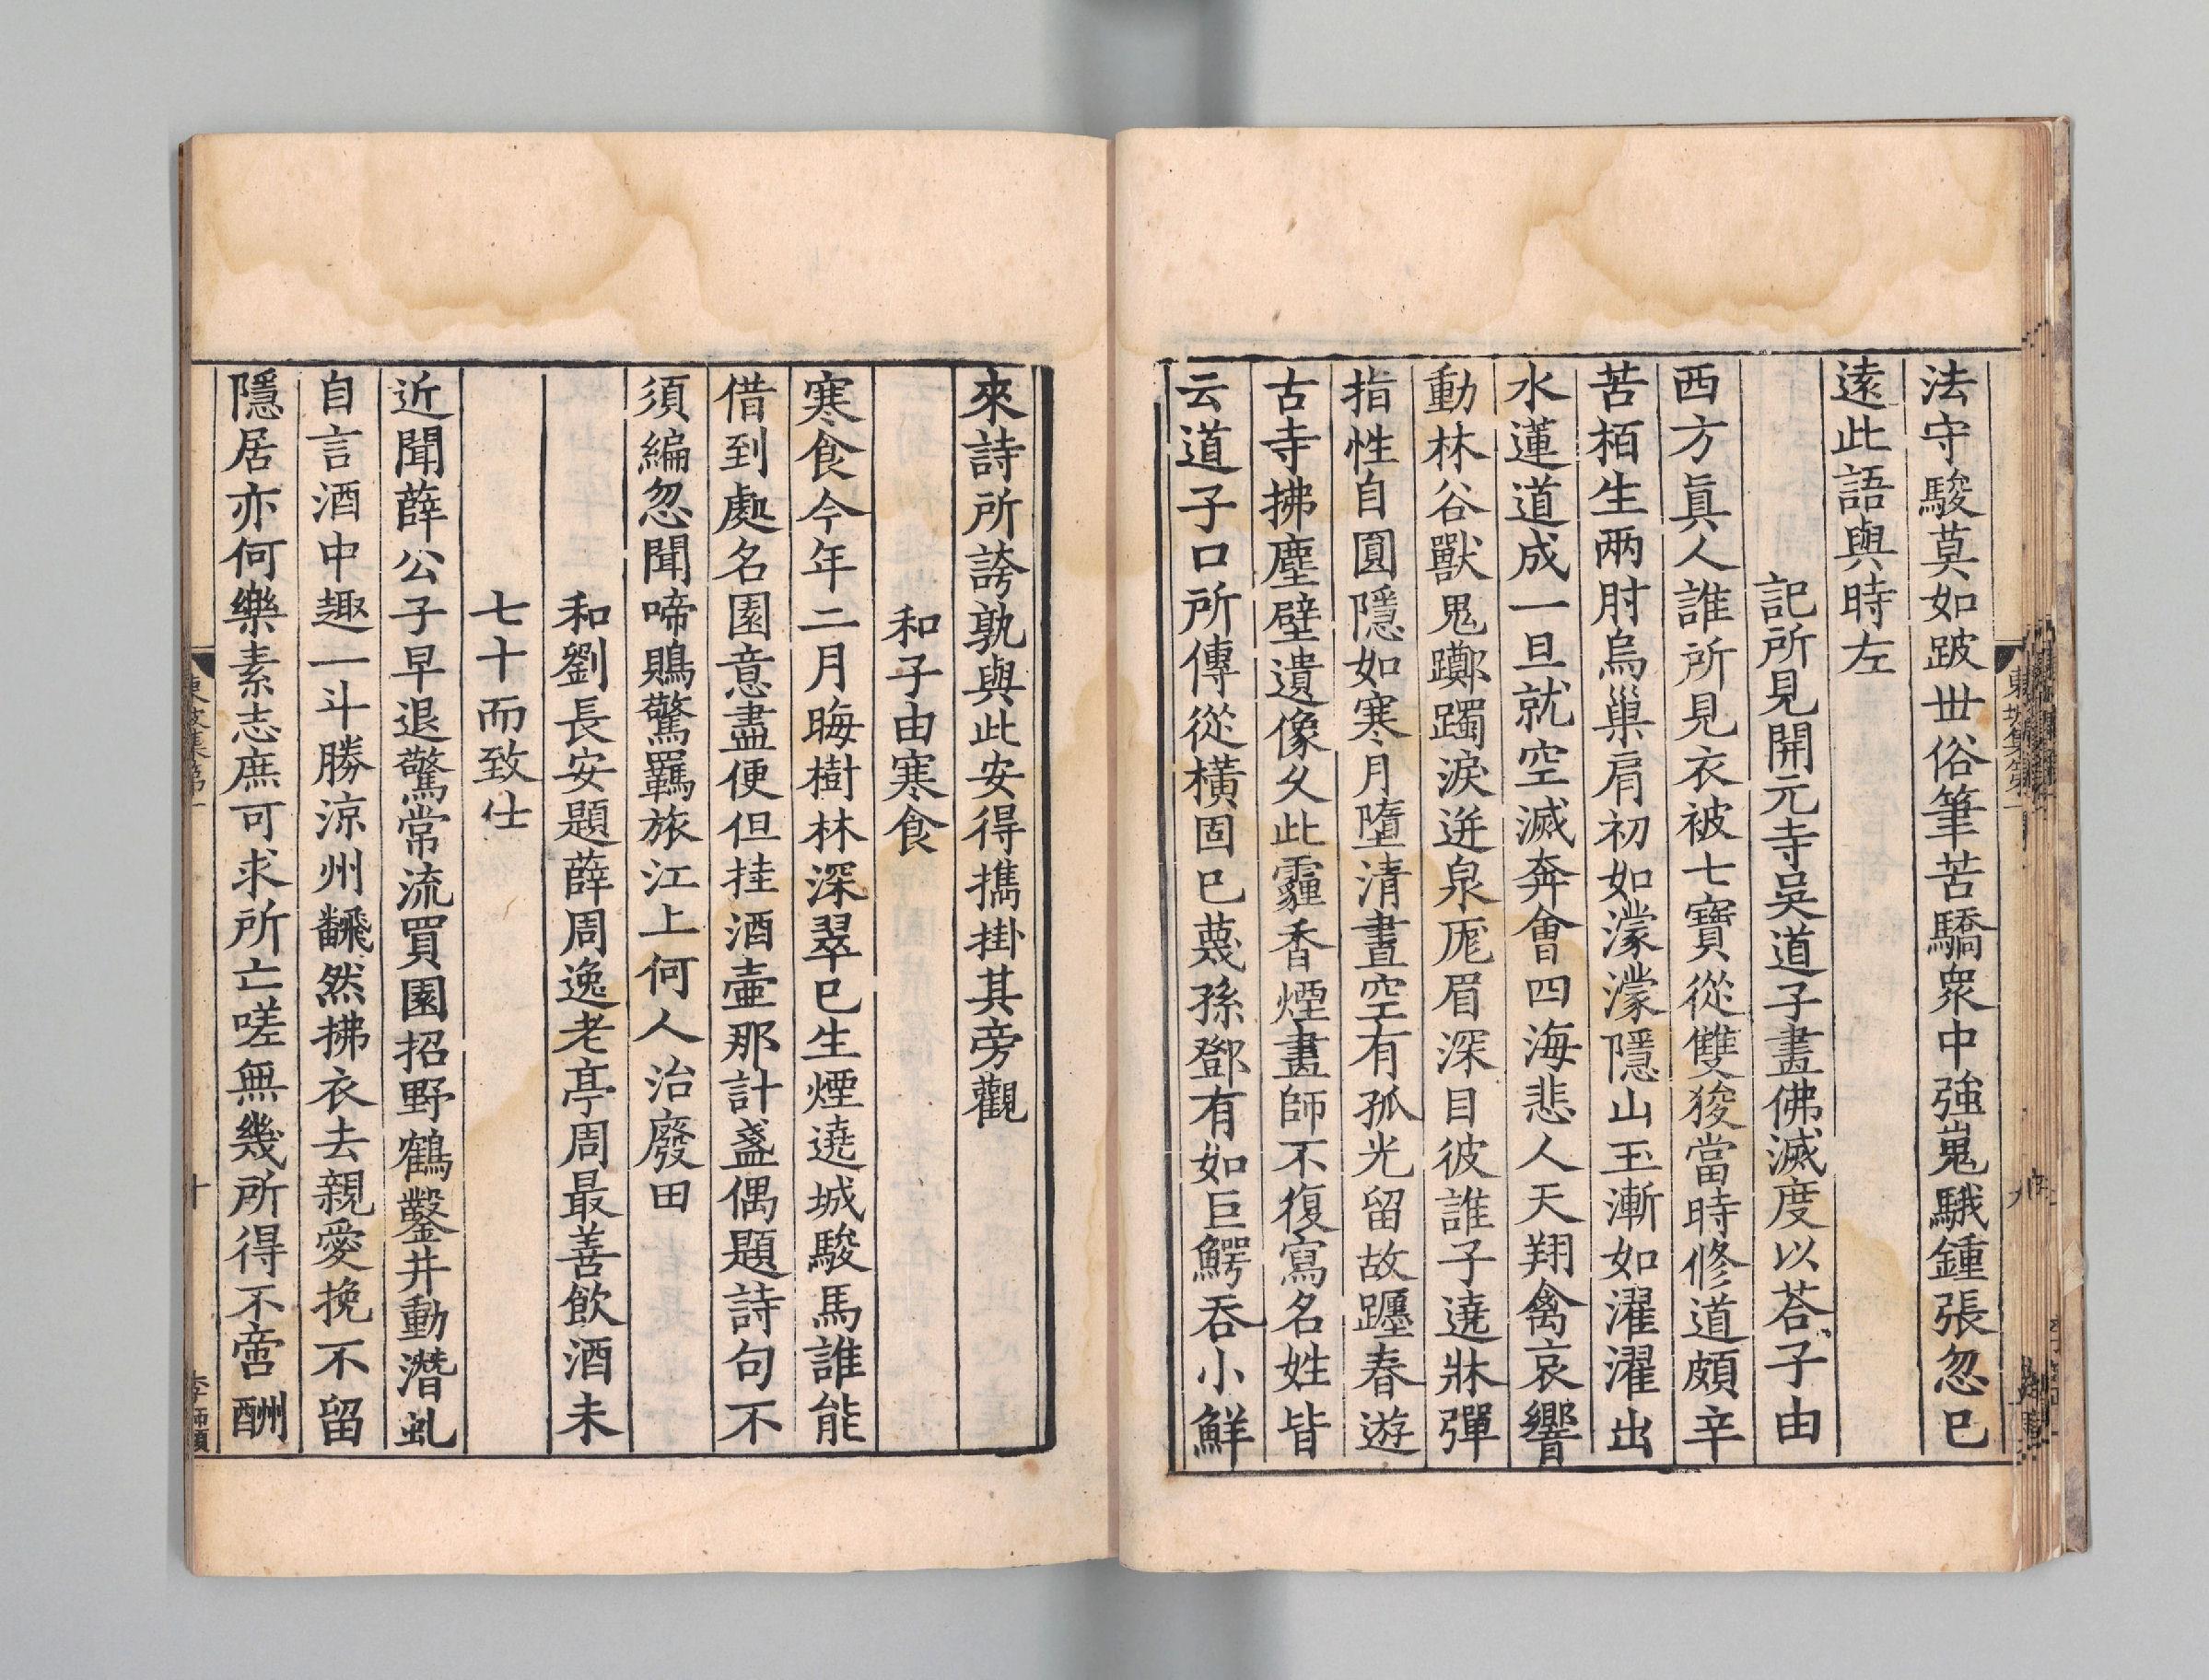 法守駿莫如跛世俗筆苦驕衆中強嵬騀鍾張忽已
遠此語與時左
記所見開元寺吳道子畫佛滅度以荅子由
西方眞人誰所見衣被七寶從雙狻當時修道頗辛
苦栢生兩肘烏巢肩初如濛濛隱山玉漸如濯濯出
水蓮道成一旦就空滅奔會四海悲人天翔禽哀響
動林谷獸鬼躑躅淚迸泉厖眉深目彼誰子遶牀彈
指性自圓隱如寒月墮清晝空有孤光留故躔春遊
古寺拂塵壁遺像久此霾香煙畫師不復寫名姓皆
云道子口所傳從橫固已蔑孫鄧有如巨鰐吞小鮮
來詩所誇孰與此安得攜掛其旁觀
和子由寒食
寒食今年二月晦樹林深翠已生煙遶城駿馬誰能
借到處名園意盡便但挂酒壷那計盞偶題詩句不
須編忽聞啼鵙驚羈旅江上何人治廢田
和劉長安題薛周逸老亭周最善飲酒未
七十而致仕
近聞薛公子早退驚常流買園招野鶴鑿井動潛虬
自言酒中趣一斗勝涼州飜然拂衣去親愛挽不留
隱居亦何樂素志庶可求所亡嗟無幾所得不啻酬
東坡集第一
十